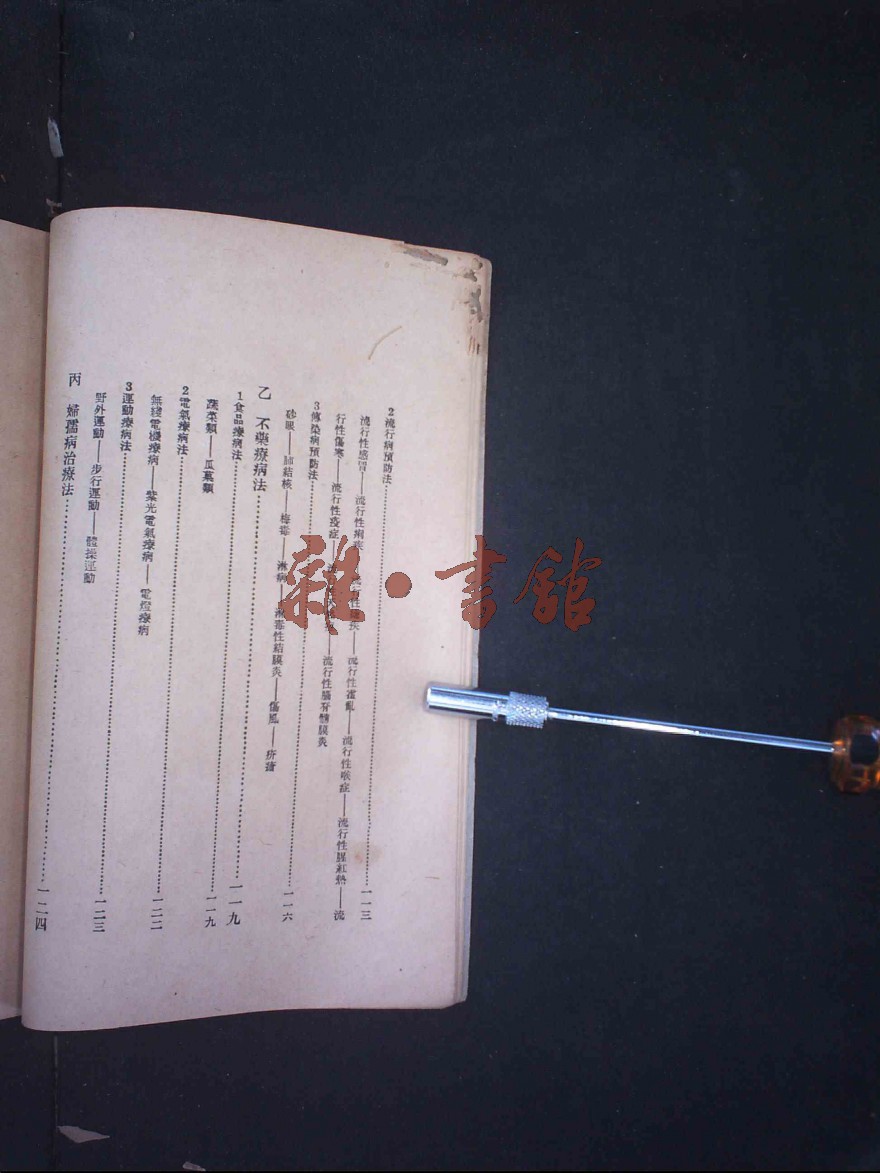 2 流行病預防法……一一三
流行性感冒——流行性痢疾——行性疾——流行性霍亂——流行性喉症——流行性腥紅熱——流
行性傷寒——流行性疫症——流行性腦脊髓膜炎
3 傳染病預防法……一一六
砂眼——肺結核——梅毒——淋病——淋毒性結膜炎——傷風——疥瘡
乙 不藥療病法……一一九
1 食品療病法……一一九
蔬菜類——瓜菓類
2 電氣療病法……一二二
無綫電機療病——紫光電氣療病——電燈療病
3 運動療病法……一二三
野外運動——步行運動——體操運動
丙 婦孺病治療法……一二四
雜·書館